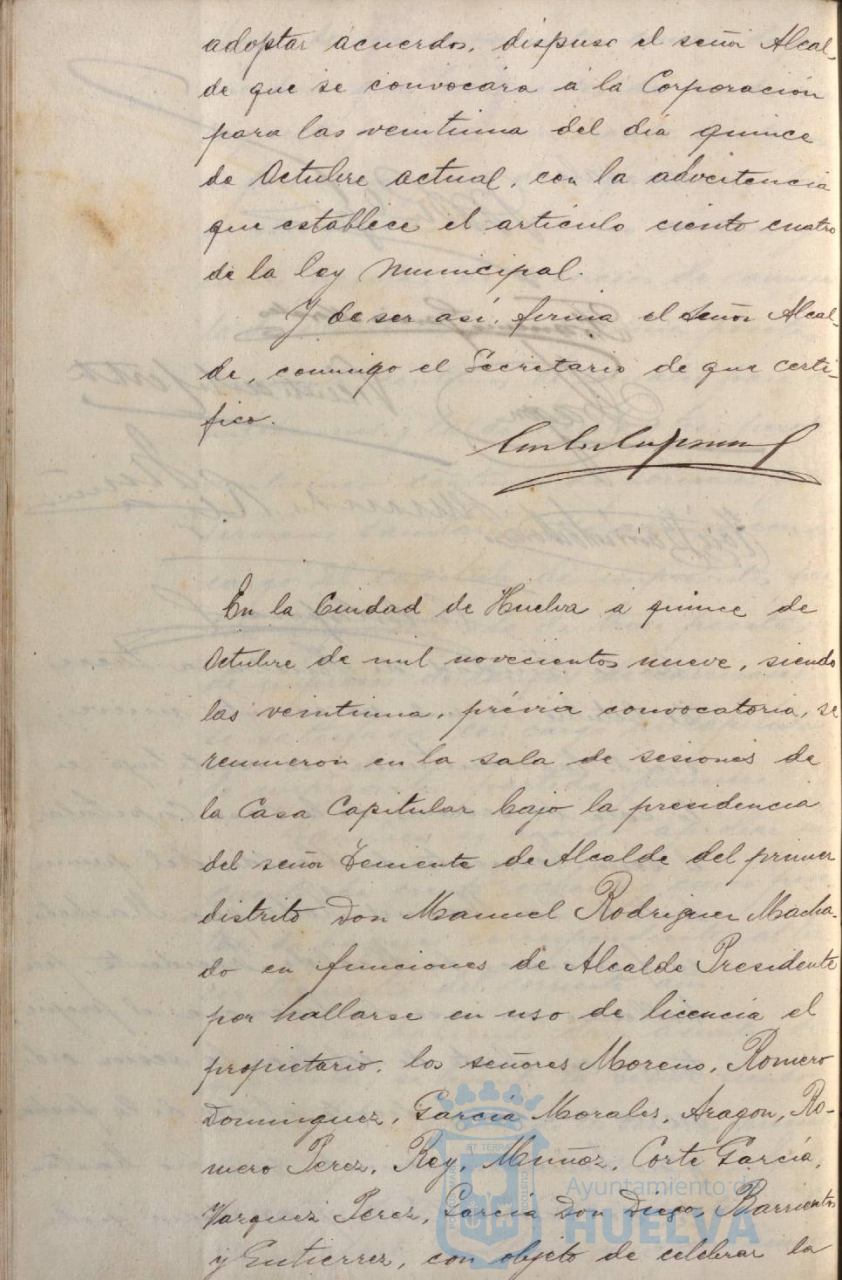 adoptar acuerdos, dispuso el señor Alcal-
de que se convocára á la Corporación
para las veintiuna del dia quince
de Octubre actual, con la advertencia
que establece el articulo ciento cuatro
de la ley Municipal.
Y de ser así, firma el Señor Alcal-
de, conmigo el Secretario de que certi-
fico.
En la Ciudad de Huelva á quince de
Octubre de mil novecientos nueve, siendo
las veintiuna, prévia convocatoria, se
reunieron en la sala de sesiones de
la Casa Capitular bajo la presidencia
del señor Teniente de Alcalde del primer
distrito Don Manuel Rodriguez Macha-
do en funciones de Alcalde Presidente
por hallarse en uso de licencia el
propietario, los señores Moreno, Romero
Dominguez, García Morales, Aragon, Ro-
mero Perez, Rey, Muñoz, Corte García,
Vazquez Perez, García Don Diego, Barrientos
y Gutierrez, con objeto de celebrar la
Ayuntamiento de
HUELVA